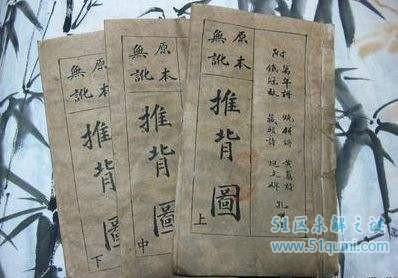 原本
無訛
推背圖
下
原本
無訛
推背圖
中
附
萬年詩 燒餅詩 黃蘗詩
鐵冠數 藏頭詩
原本
無訛
推背圖
上
51区未解之谜
www.51qumi.com